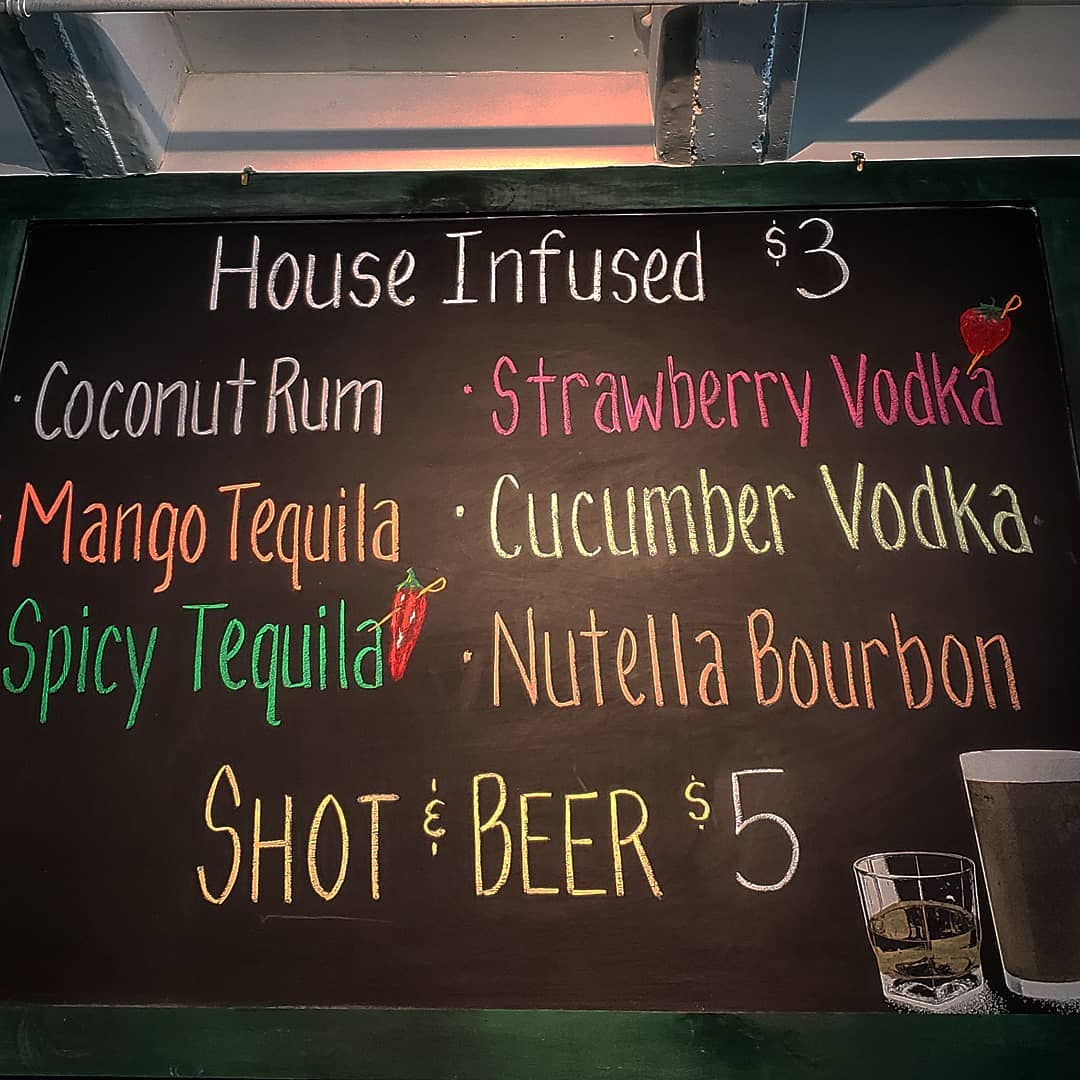 House Infused $3
· Coconut Rum
· Strawberry Vodka
· Mango Tequila
· Cucumber Vodka
Spicy Tequila
· Nutella Bourbon
SHOT & BEER $5